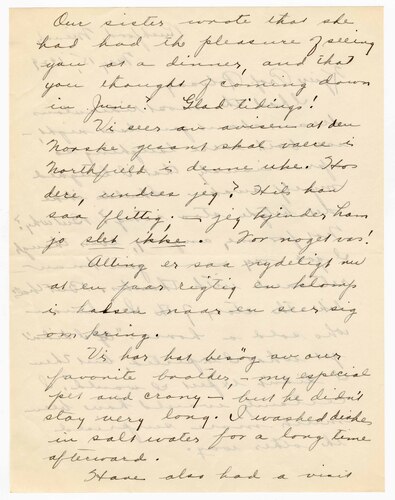 Our sister wrote that she
had had the pleasure of seeing
you at a dinner, and that
you thought of coming down
in June? Glad tidings!
Vi seer av avisen at den
Norske gesant skal vaere i
Northfield i denne uke. Hos
dere, undres jeg? Hils han
saa flittig. — jeg kjender ham
jo slet ikke. Vor noget vas!
Alting er saa nydeligt nu
at en faar rigtig en klomp
i halsen naar en seer sig
omkring.
Vi har hat besög av our
favorite brother, — my especial
pet and crony — but he didn't
stay very long. I washed dishes
in salt water for a long time
afterward.
Have also had a visit